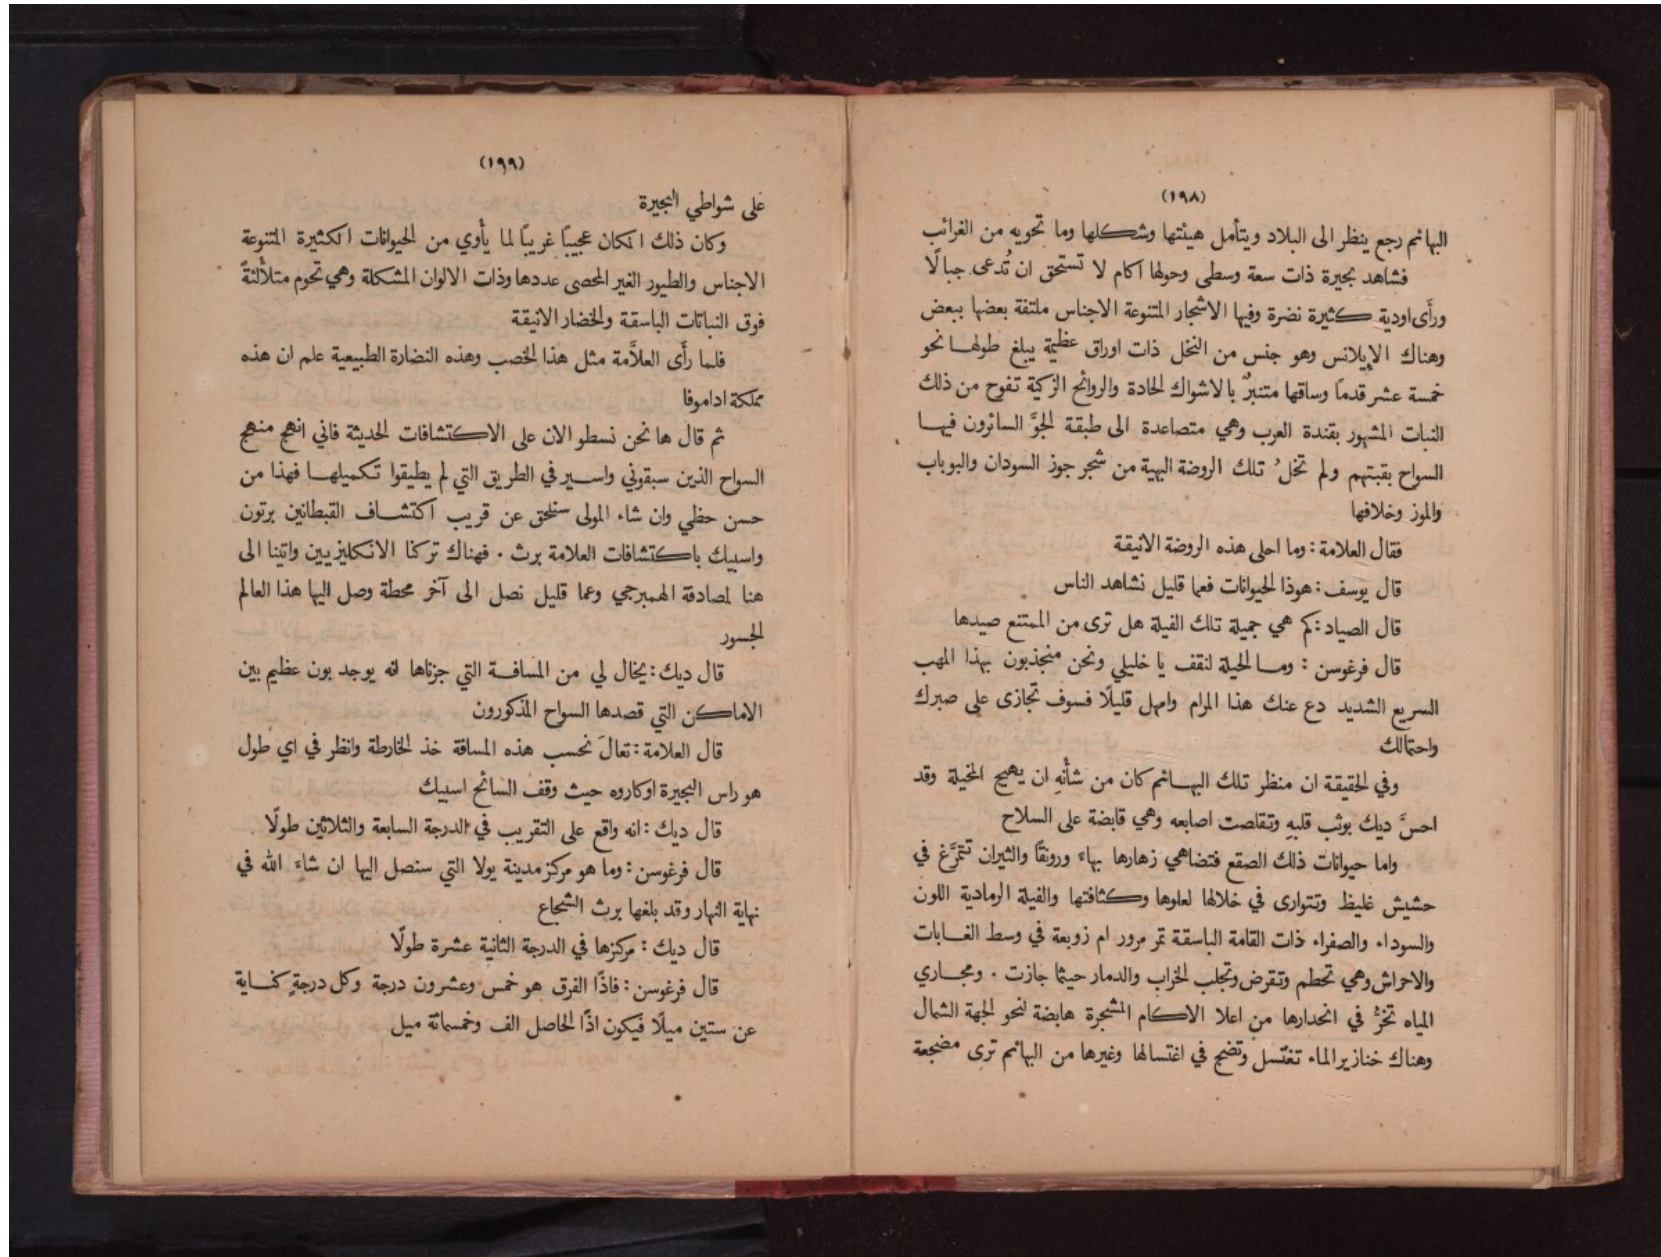 (١٩٨)
البهائم رجع ينظر الى البلاد ويتأمل هيئتها وشكلها وما تحويه من الغرائب
فشاهد بحيرة ذات سعة وسطى وحولها اكام لا تستحق ان تُدعى جبالًا
ورأى اودية كثيرة نضرة وفيها الاشجار المتنوعة الاجناس ملتفة بعضها ببعض
وهناك الإيلانس وهو جنس من النخل ذات اوراق عظيمة يبلغ طولها نحو
خمسة عشر قدمًا وساقها متنبرٌ بالاشواك الحادة والروائح الزكية تفوح من ذلك
النبات المشهور بقندة العرب وهي متصاعدة الى طبقة الجوّ السائرون فيها
السواح بقبتهم ولم تخلُ تلك الروضة البهية من شجر جوز السودان والبوباب
والموز وخلافها
فقال العلامة : وما احلى هذه الروضة الانيقة
قال يوسف : هوذا الحيوانات فعما قليل نشاهد الناس
قال الصياد : كم هي جميلة تلك الفيلة هل ترى من الممتنع صيدها
قال فرغوسن : وما الحيلة لنقف يا خليلي ونحن منجذبون بهذا المهب
السريع الشديد دع عنك هذا المرام وامهل قليلًا فسوف تجازى على صبرك
واحتمالك
وفي الحقيقة ان منظر تلك البهائم كان من شأنهِ ان يهيج المخيلة وقد
احسَّ ديك بوثب قلبهِ وتقلصت اصابعه وهي قابضة على السلاح
واما حيوانات ذلك الصقع فتضاهي زهارها بهاءً ورونقًا والثيران تتمرَّغ في
حشيش غليظ وتتوارى في خلالها لعلوها وكثافتها والفيلة الرمادية اللون
والسوداء والصفراء ذات القامة الباسقة تمر مرور ام زوبعة في وسط الغابات
والاحراش وهي تحطم وتقرض وتجلب الخراب والدمار حيثما جازت . ومجاري
المياه تخرُّ في انحدارها من اعلا الاكام المشجرة هابضة لنحو الجهة الشمال
وهناك خنازير الماء تغتسل وتضج في اغتسالها وغيرها من البهائم ترى مضجعة
(١٩٩)
على شواطي البحيرة
وكان ذلك المكان عجيبًا غريبًا لما يأوي من الحيوانات الكثيرة المتنوعة
الاجناس والطيور الغير المحصى عددها وذات الالوان المشكلة وهي تحوم متلألئةً
فوق النباتات الباسقة والخضار الانيقة
فلما رأى العلاَّمة مثل هذا الخصب وهذه النضارة الطبيعية علم ان هذه
مملكة اداموفا
ثم قال ها نحن نسطو الان على الاكتشافات الحديثة فاني انهج منهج
السواح الذين سبقوني واسير في الطريق التي لم يطيقوا تكميلها فهذا من
حسن حظي وان شاء المولى سنلحق عن قريب اكتشاف القبطانين برتون
واسبيك باكتشافات العلامة برث . فهناك تركنا الانكليزيين واتينا الى
هنا لمصادقة الهمبرجي وعما قليل نصل الى آخر محطة وصل اليها هذا العالم
الجسور
قال ديك : يخال لي من المسافة التي جزناها انه يوجد بون عظيم بين
الاماكن التي قصدها السواح المذكورون
قال العلامة : تعالَ نحسب هذه المسافة خذ الخارطة وانظر في اي طول
هو راس البحيرة اوكاروه حيث وقف السائح اسبيك
قال ديك : انه واقع على التقريب في الدرجة السابعة والثلاثين طولًا
قال فرغوسن : وما هو مركز مدينة يولا التي سنصل اليها ان شاءَ الله في
نهاية النهار وقد بلغها برث الشجاع
قال ديك : مركزها في الدرجة الثانية عشرة طولًا
قال فرغوسن : فاذًا الفرق هو خمس وعشرون درجة وكل درجةٍ كناية
عن ستين ميلًا فيكون اذًا الحاصل الف وخمسمائة ميل